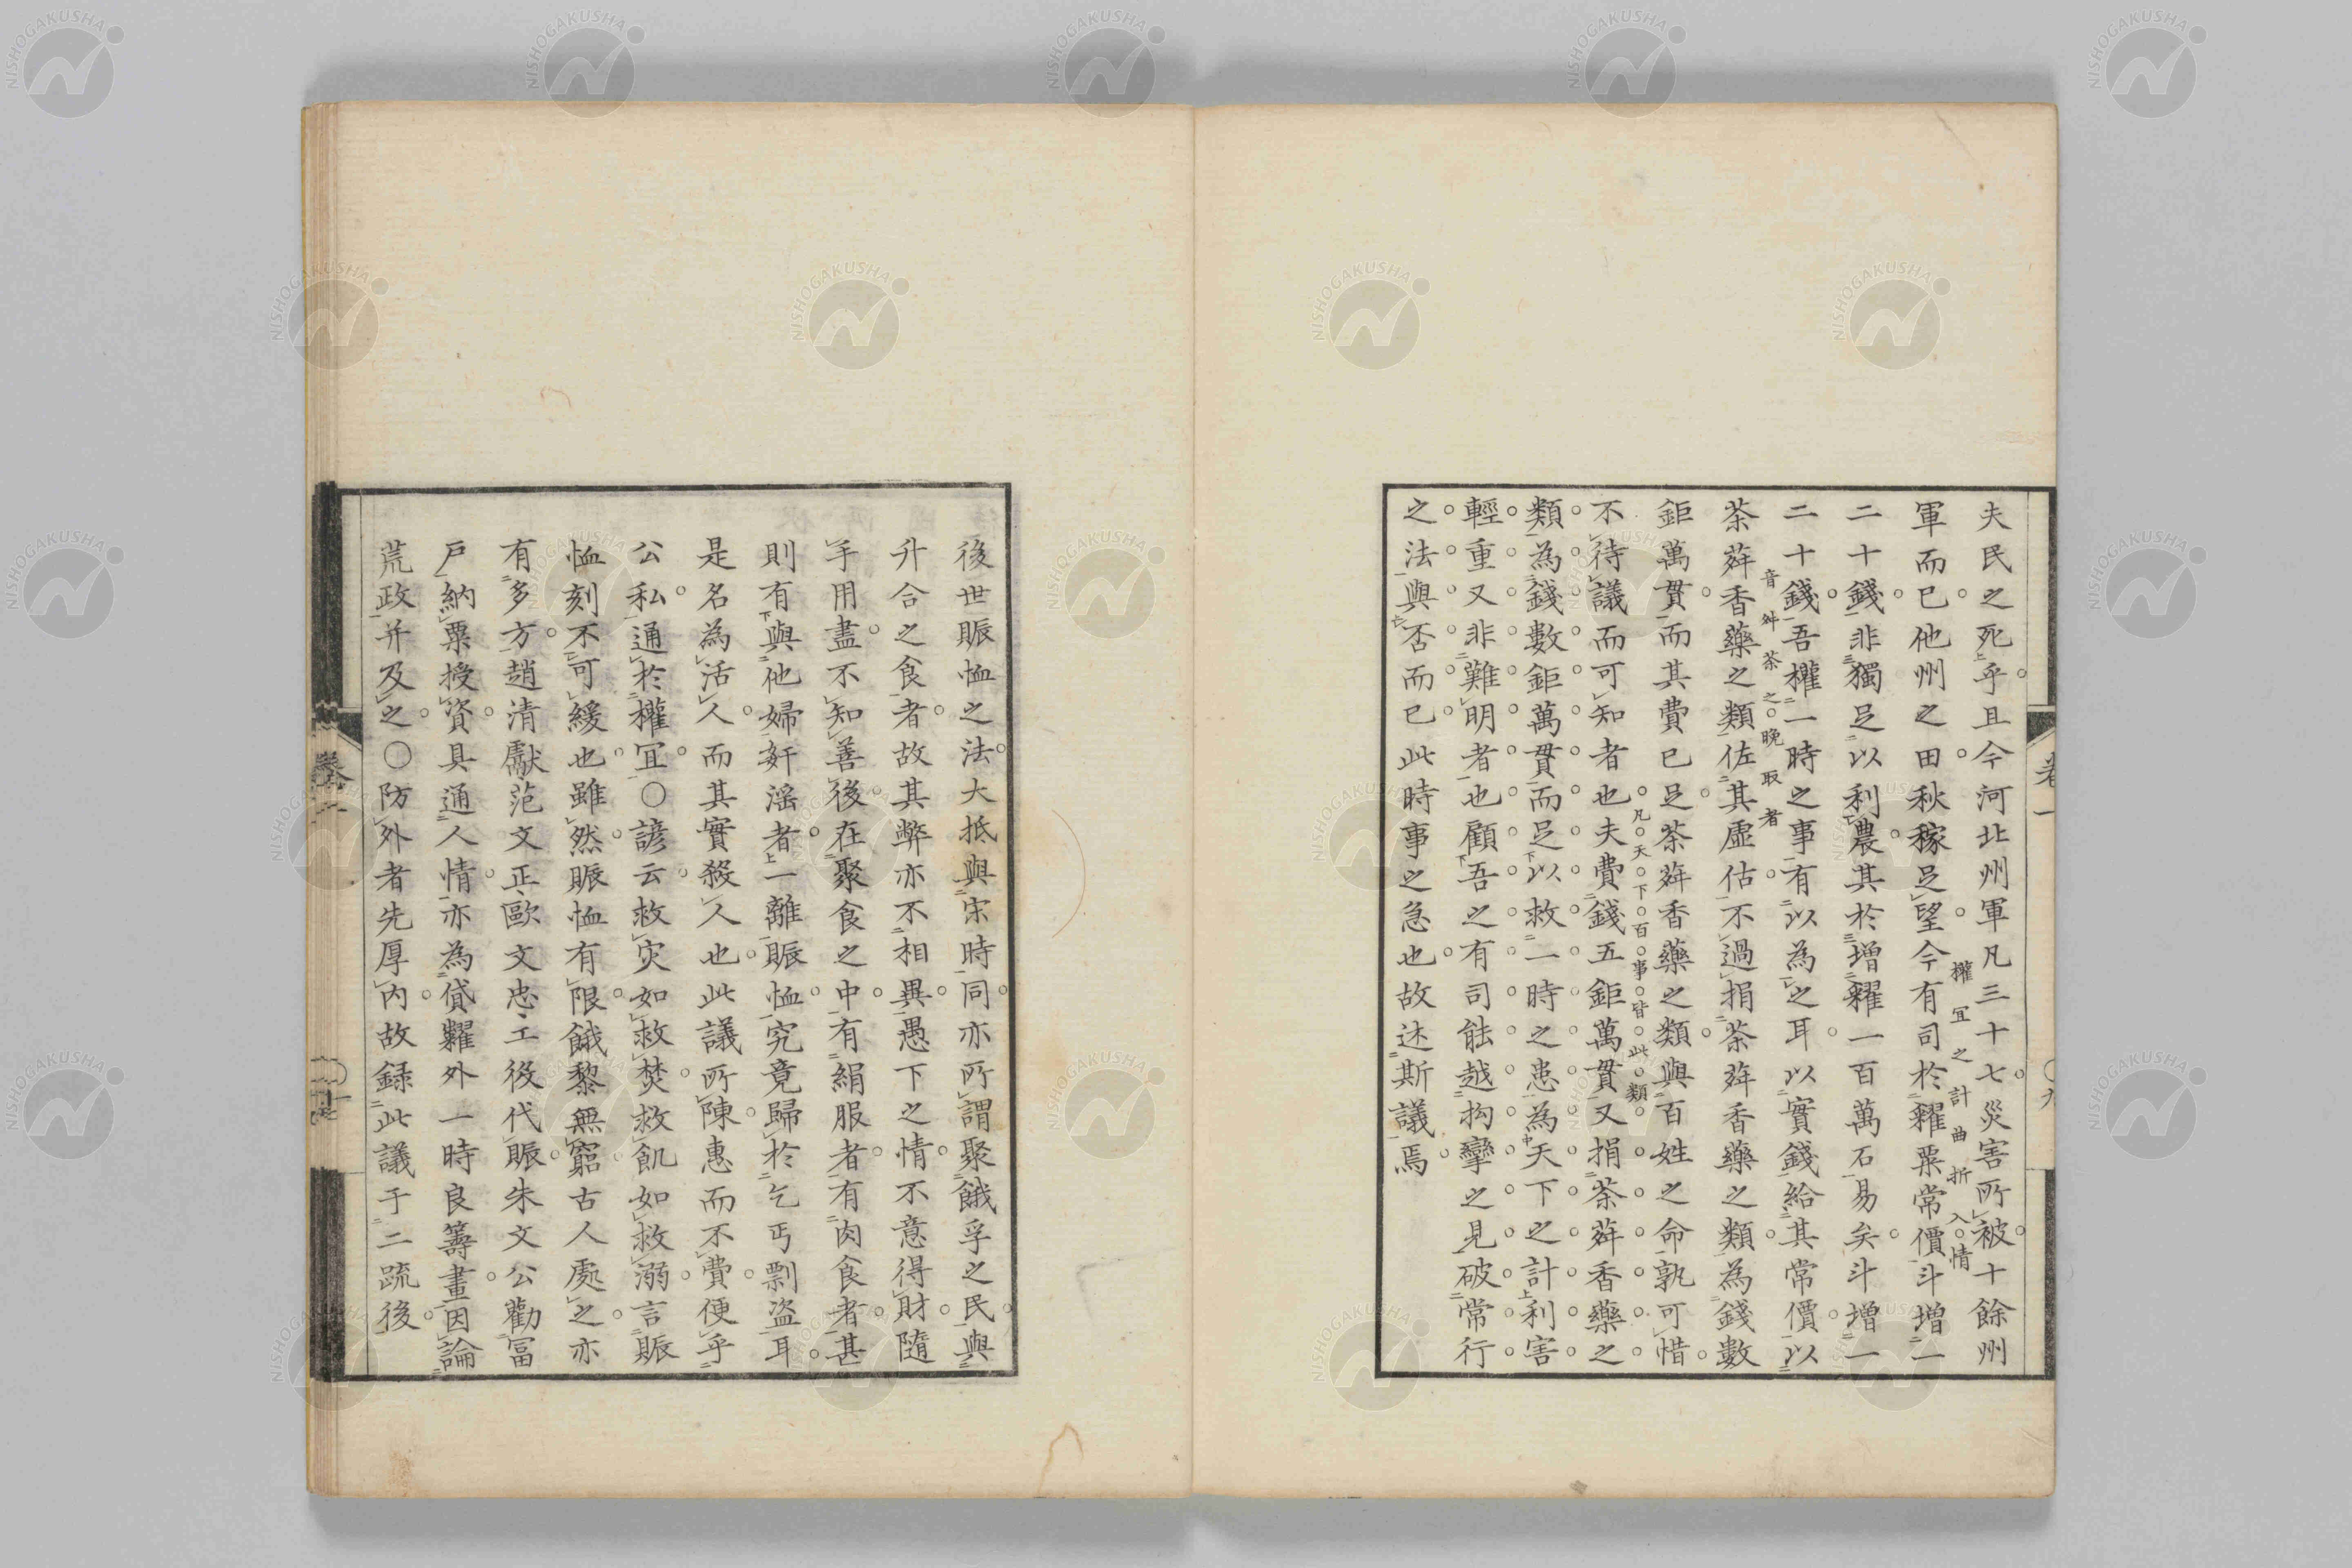 夫民之死乎且今河北州軍凡三十七災害所被十餘州
軍而已他州之田秋稼足望今有司於糴粟常價斗增一
權宜之計曲折入情
二十錢非獨足以利農其於增糴一百萬石易矣斗增一
二十錢吾權一時之事有以為之耳以實錢給其常價以
音舛茶之晚取者
茶荈香藥之類佐其虛估不過捐茶荈香藥之類為錢數
鉅萬貫而其費已足茶荈香藥之類與百姓之命孰可惜
凡天下百事皆此類
不待議而可知者也夫費錢五鉅萬貫又捐茶荈香藥之
類為錢數鉅萬貫而足以救一時之患為天下之計利害
輕重又非難明者也顧吾之有司能越拘攣之見破常行
之法與否而已此時事之急也故述斯議焉
卷一
〇九
後世賑恤之法大抵與宋時同亦所謂聚餓孚之民與
升合之食者故其弊亦不相異愚下之情不意得財隨
手用盡不知善後在聚食之中有絹服者有肉食者甚
則有與他婦姧滛者一離賑恤究竟歸於乞丐剽盜耳
是名為活人而其實殺人也此議所陳惠而不費便乎
公私通於權宜〇諺云救灾如救焚救飢如救溺言賑
恤刻不可緩也雖然賑恤有限餓黎無窮古人處之亦
有多方趙清獻范文正歐文忠工役代賑朱文公勸富
戶納粟授資具通人情亦為貸糶外一時良籌畫因論
荒政并及之〇防外者先厚內故録此議于二疏後
卷一